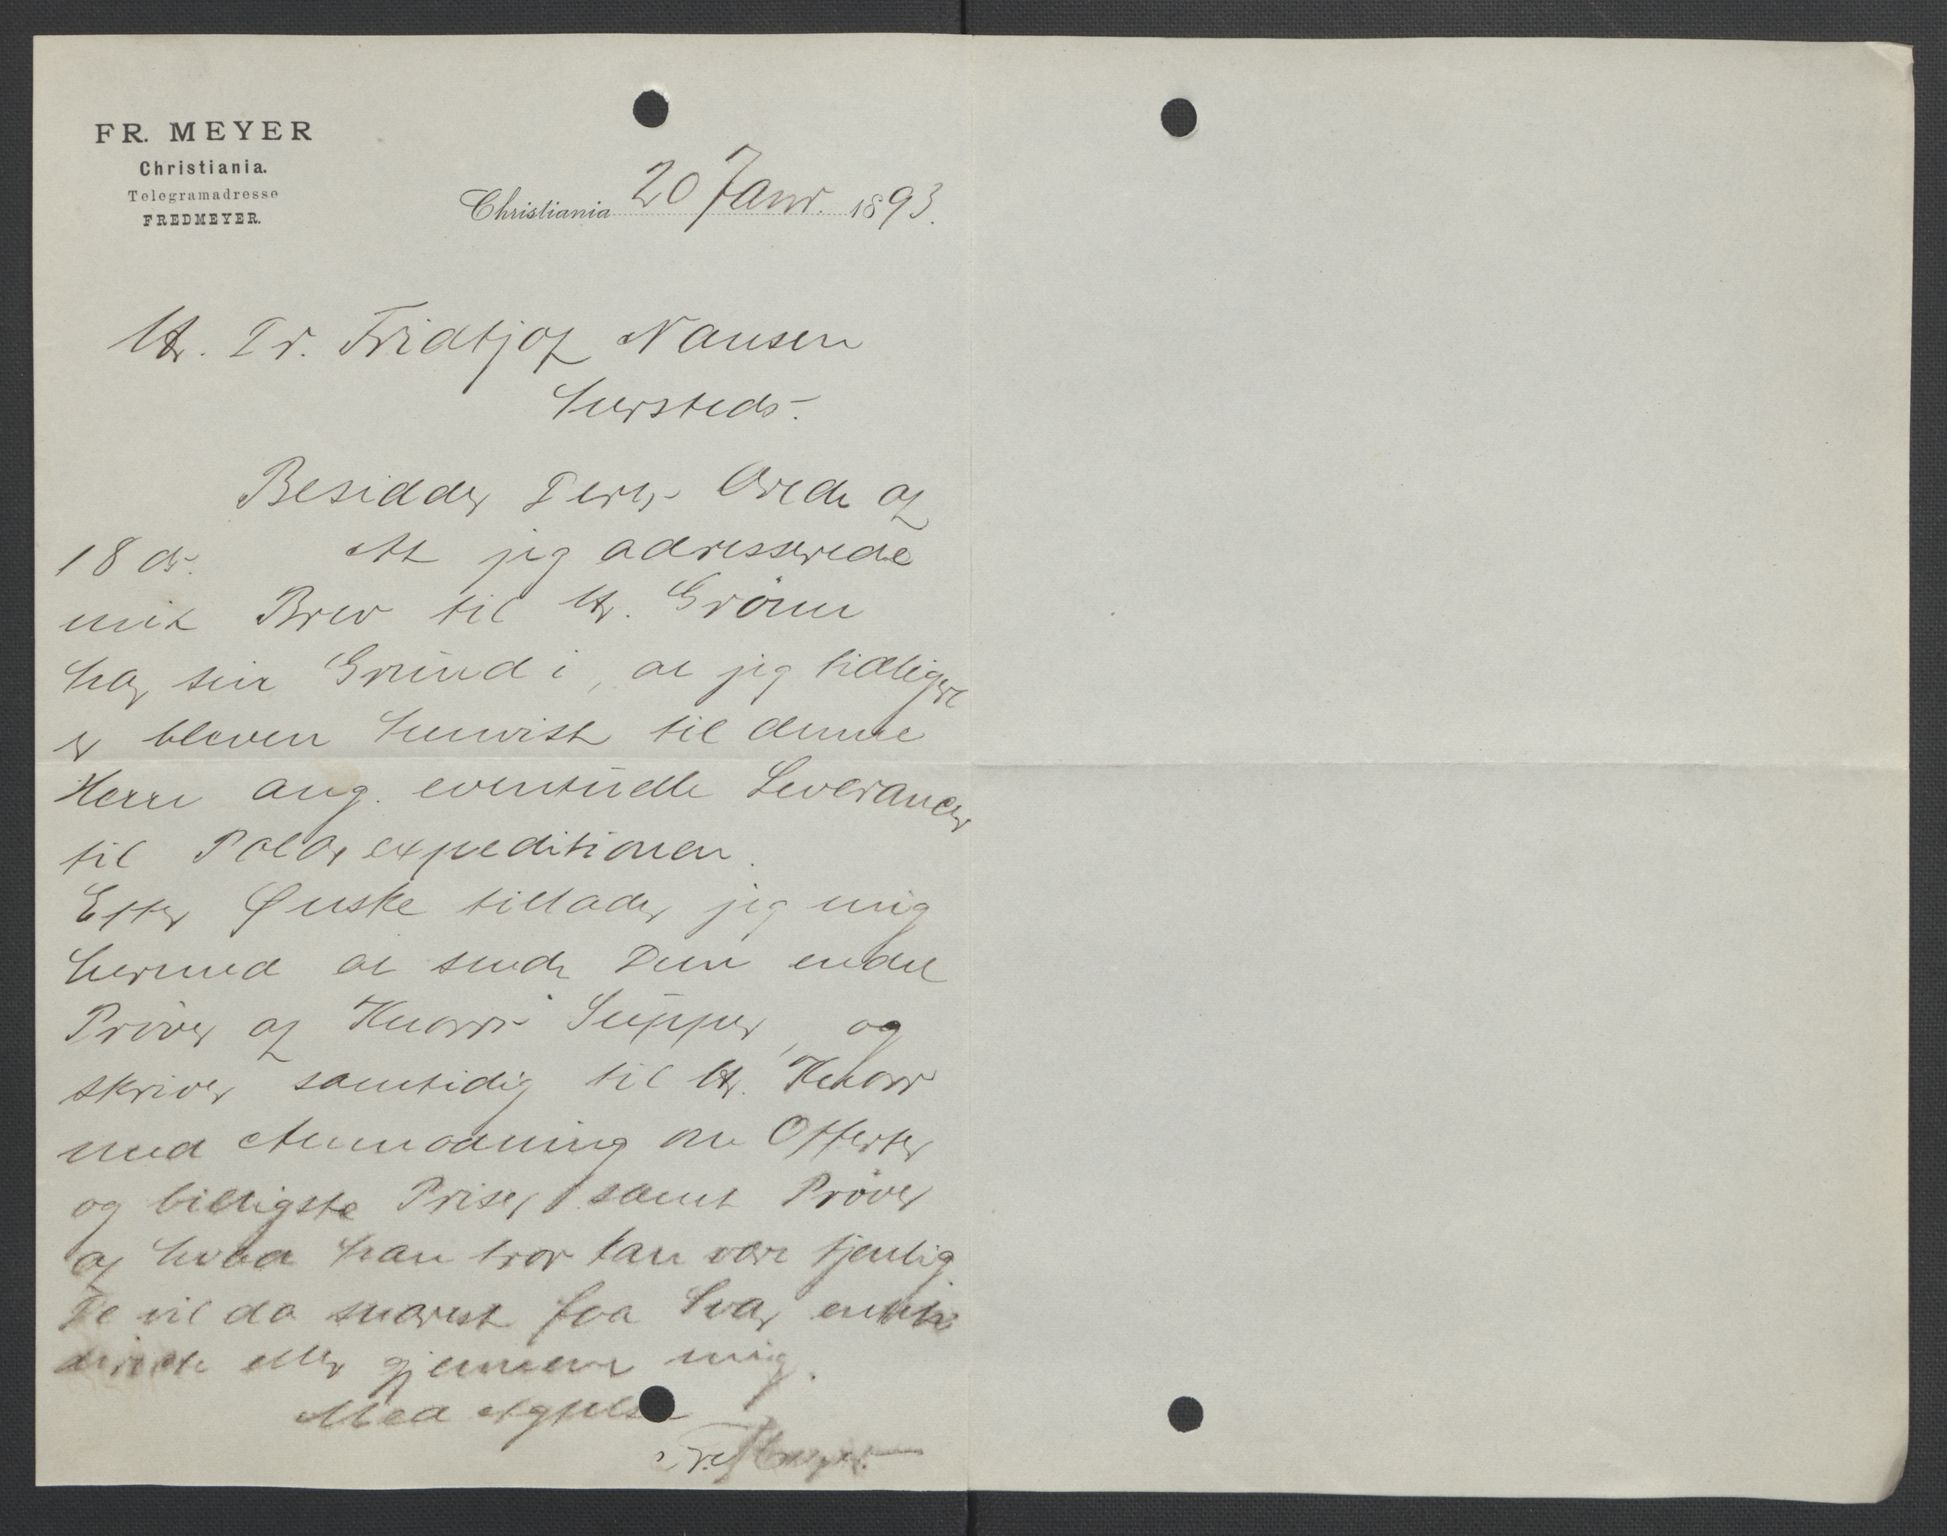 FR. MEYER
Christiania.
Telegramadresse
FREDMEYER.
Christiania 20 Janr. 1893.
Hr. Dr. Fridtjof Nansen
hersteds.
Besidder Deres Ærede af
18 ds. At jeg adresserede
mit Brev til Hr. Grönn
har sin Grund i, at jeg tidligere
er bleven henvist til denne
Herre ang. eventuelle Leverancer
til Polarexpeditionen.
Efter Ønske tillader jeg mig
hermed at sende Dem endel
Prøver af Knorrs Supper, og
skriver samtidig til Hr. Knorr
med Anmodning om Offerter
og billigste Priser, samt Prøver
af hvad han tror kan være tjenlig.
De vil da snarest faa Svar enten
direkte eller gjennem mig.
Med Agtelse
Fr. Meyer.